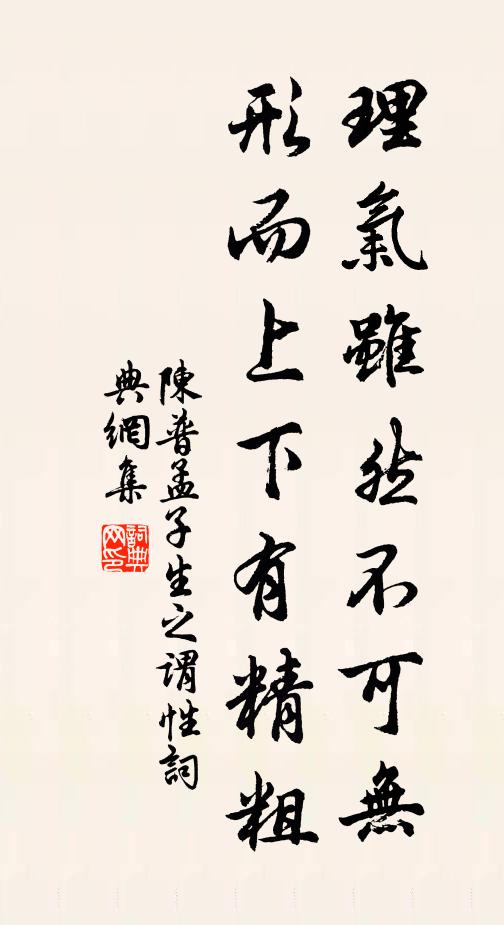 理氣雖然不可無
形而上下有精粗
陳普孟子生之謂性詞
典網集
詞典
网印